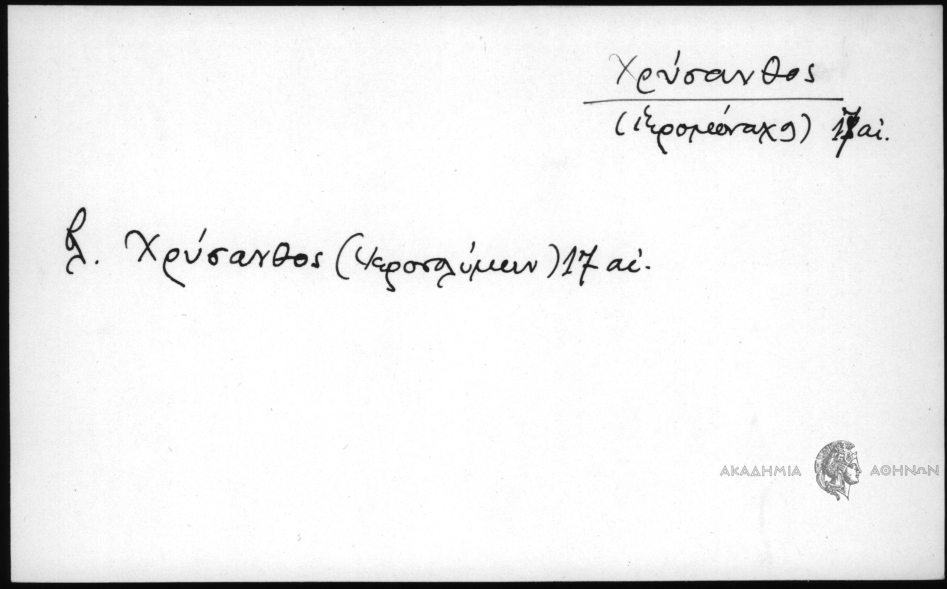 Χρύσανθος
(ἱερομόναχο) 17 αἰ.
βλ. Χρύσανθος (Ἱεροσολύμων) 17 αἰ.
ΑΚΑΔΗΜΙΑ ΑΘΗΝΩΝ